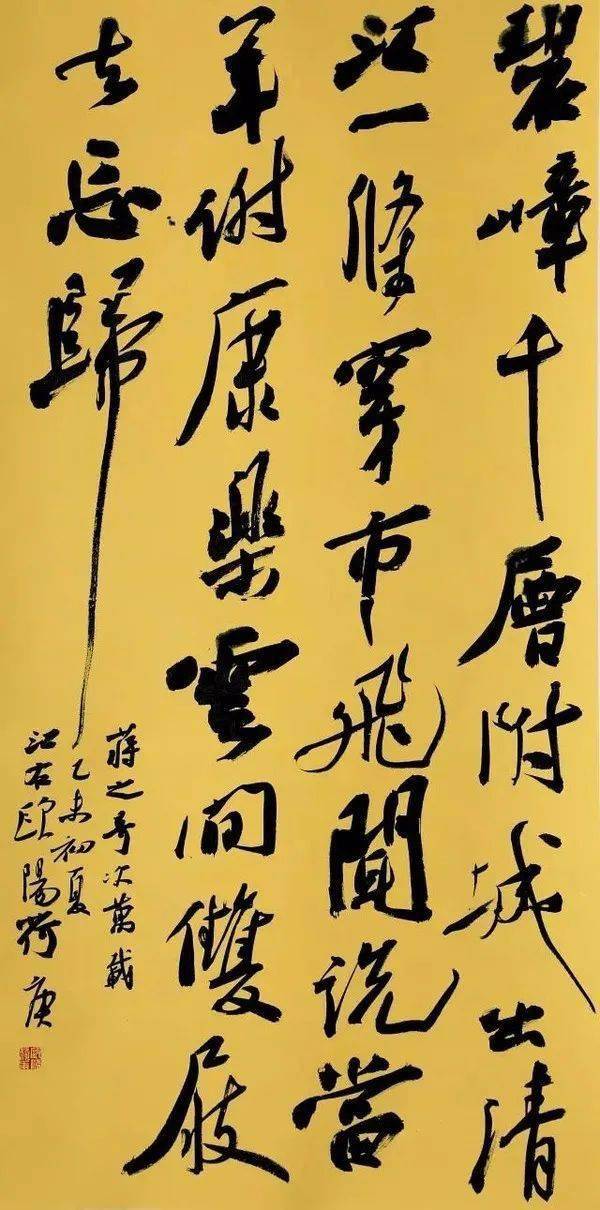 碧嶂千層附城出清
江一條穿市飛聞説當
年謝康樂雲間雙屐
去忘歸
蔣之奇次萬載
乙未初夏
江右歐陽荷庚